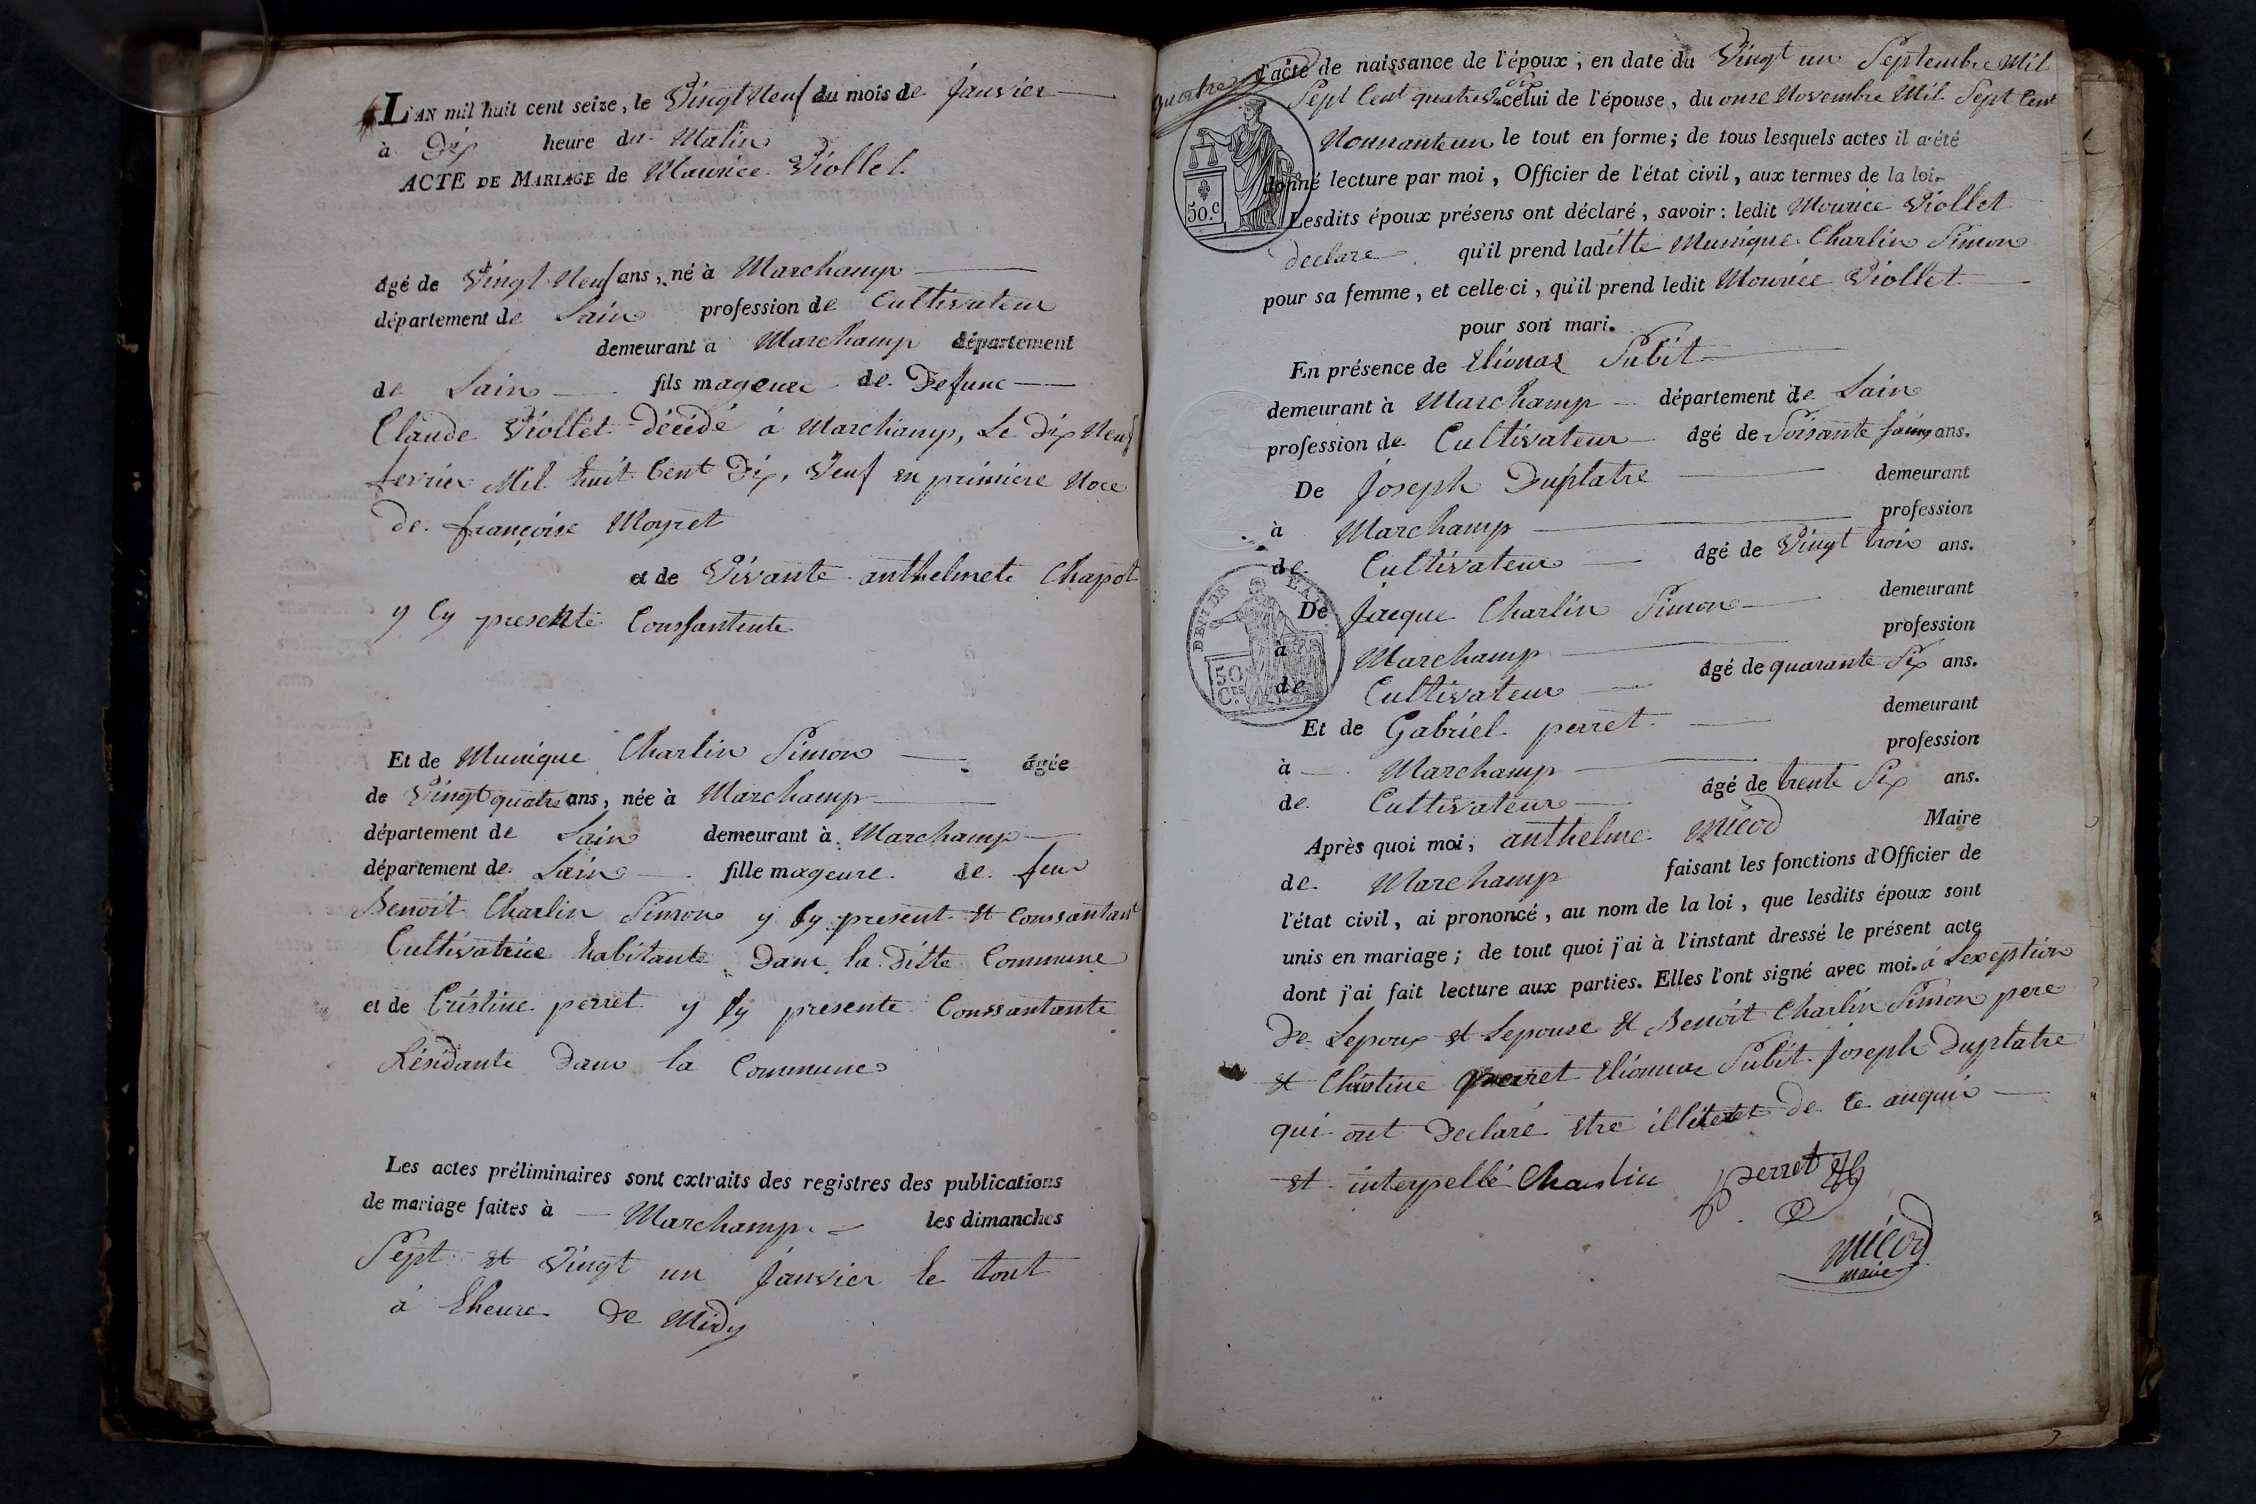 L'AN mil huit cent seize, le Vingt Neuf du mois de Janvier
à Dix heure du Matin
ACTE DE MARIAGE de Maurice Viollet
âgé de Vingt Neuf ans, né à Marchamp
département de Lain profession de Cultivateur
demeurant à Marchamp département
de Lain fils mageur de Defunc
Claude Viollet décédé á Marchamp, Le dix Neuf
fevrier Mil huit Cent Dix, Veuf en primiere Noce
De françoise Moyret
et de Vivante anthelmete Chapot
y Cy presente Conssantente
Et de Munique Charlin Simon âgée
de Vingt quatre ans, née à Marchamp
département de Lain demeurant à Marchamp
département de Lain fille mageure de feu
Benoit Charlin Simon y Cy present et Conssantant
Cultivatrice habitante Dans la Ditte Commune
et de Cristine perret y Cy presente Conssantante
Résidante Dans la Commune
Les actes préliminaires sont extraits des registres des publications
de mariage faites à Marchamp les dimanches
Sept et Vingt un Janvier le tout
á Lheure De Midy
l'acte de naissance de l'époux, en date du Vingt un Septembre Mil
quatre
Six
Sept Cent quatre V celui de l'épouse, du onze Novembre Mil Sept Cent
Nonnante un le tout en forme; de tous lesquels actes il a été
donné lecture par moi, Officier de l'état civil, aux termes de la loi.
50.c
Lesdits époux présens ont déclaré, savoir: ledit Mourice Viollet
declare qu'il prend laditte Munique Charlin Simon
pour sa femme, et celle-ci, qu'il prend ledit Mourice Viollet
pour son mari.
En présence de Elionas Subit
demeurant à Marchamp département de Lain
profession de Cultivateur âgé de Soisante ans.
De Joseph Duplatre demeurant
à Marchamp profession
de Cultivateur âgé de Vingt trois ans.
De Jacque Charlin Simon demeurant
à Marchamp profession
50 Ces
de Cultivateur âgé de quarante Six ans.
Et de Gabriel perret demeurant
à Marchamp profession
de Cultivateur âgé de trente Six ans.
Après quoi moi, anthelme Micod Maire
de Marchamp faisant les fonctions d'Officier de
l'état civil, ai prononcé, au nom de la loi, que lesdits époux sont
unis en mariage; de tout quoi j'ai à l'instant dressé le présent acte
dont j'ai fait lecture aux parties. Elles l'ont signé avec moi. á Lexception
De Lepoux et Lepouse et Benoit Charlin Simon pere
et Christine perret Elionnas Subit Joseph Duplatre
qui ont Declaré etre illiteret de ce anquis
et interpellé Charlin perret
Micod
maire